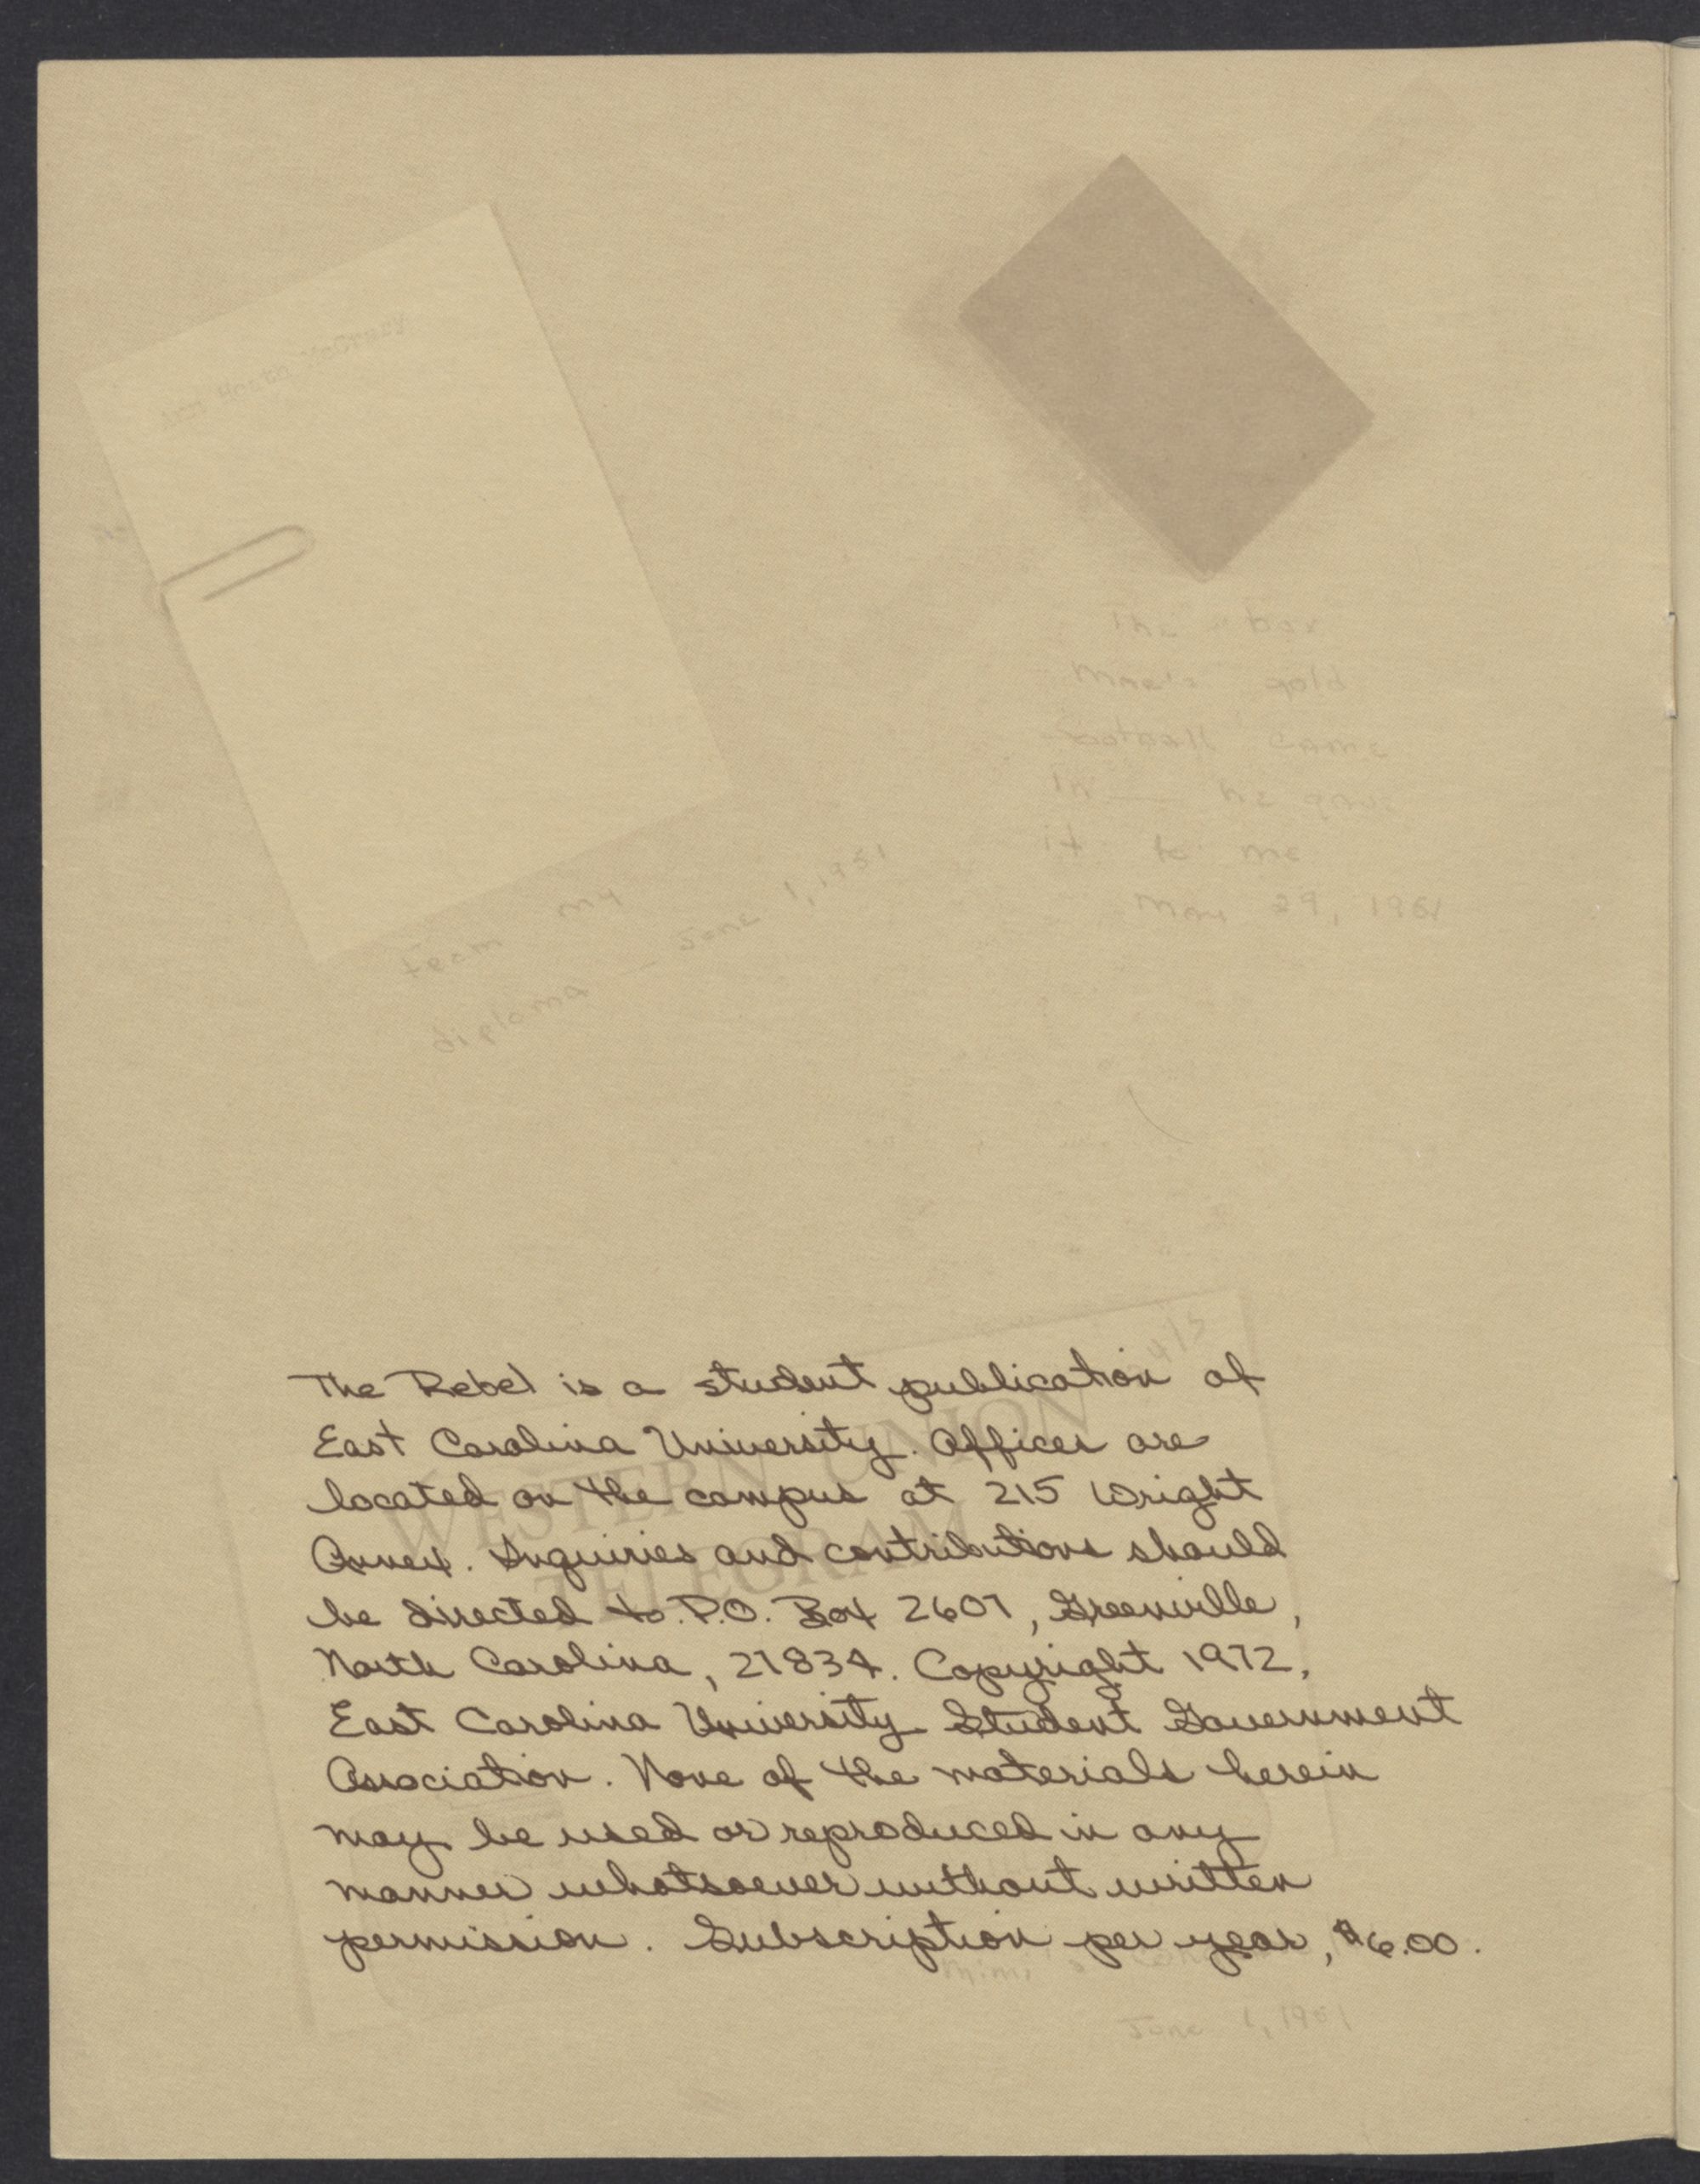 The box
Mac's gold
football came
in — he gave
it to me
May 29, 1951
team my
diploma — June 1, 1951
The Rebel is a student publication of
East Carolina University. Offices are
located on the campus at 215 Wright
Annex. Inquiries and contributions should
be directed to P.O. Box 2607, Greenville,
North Carolina, 27834. Copyright 1972,
East Carolina University Student Government
Association. None of the materials herein
may be used or reproduced in any
manner whatsoever without written
permission. Subscription per year, $6.00.
WESTERN UNION
TELEGRAM
June 1, 1951